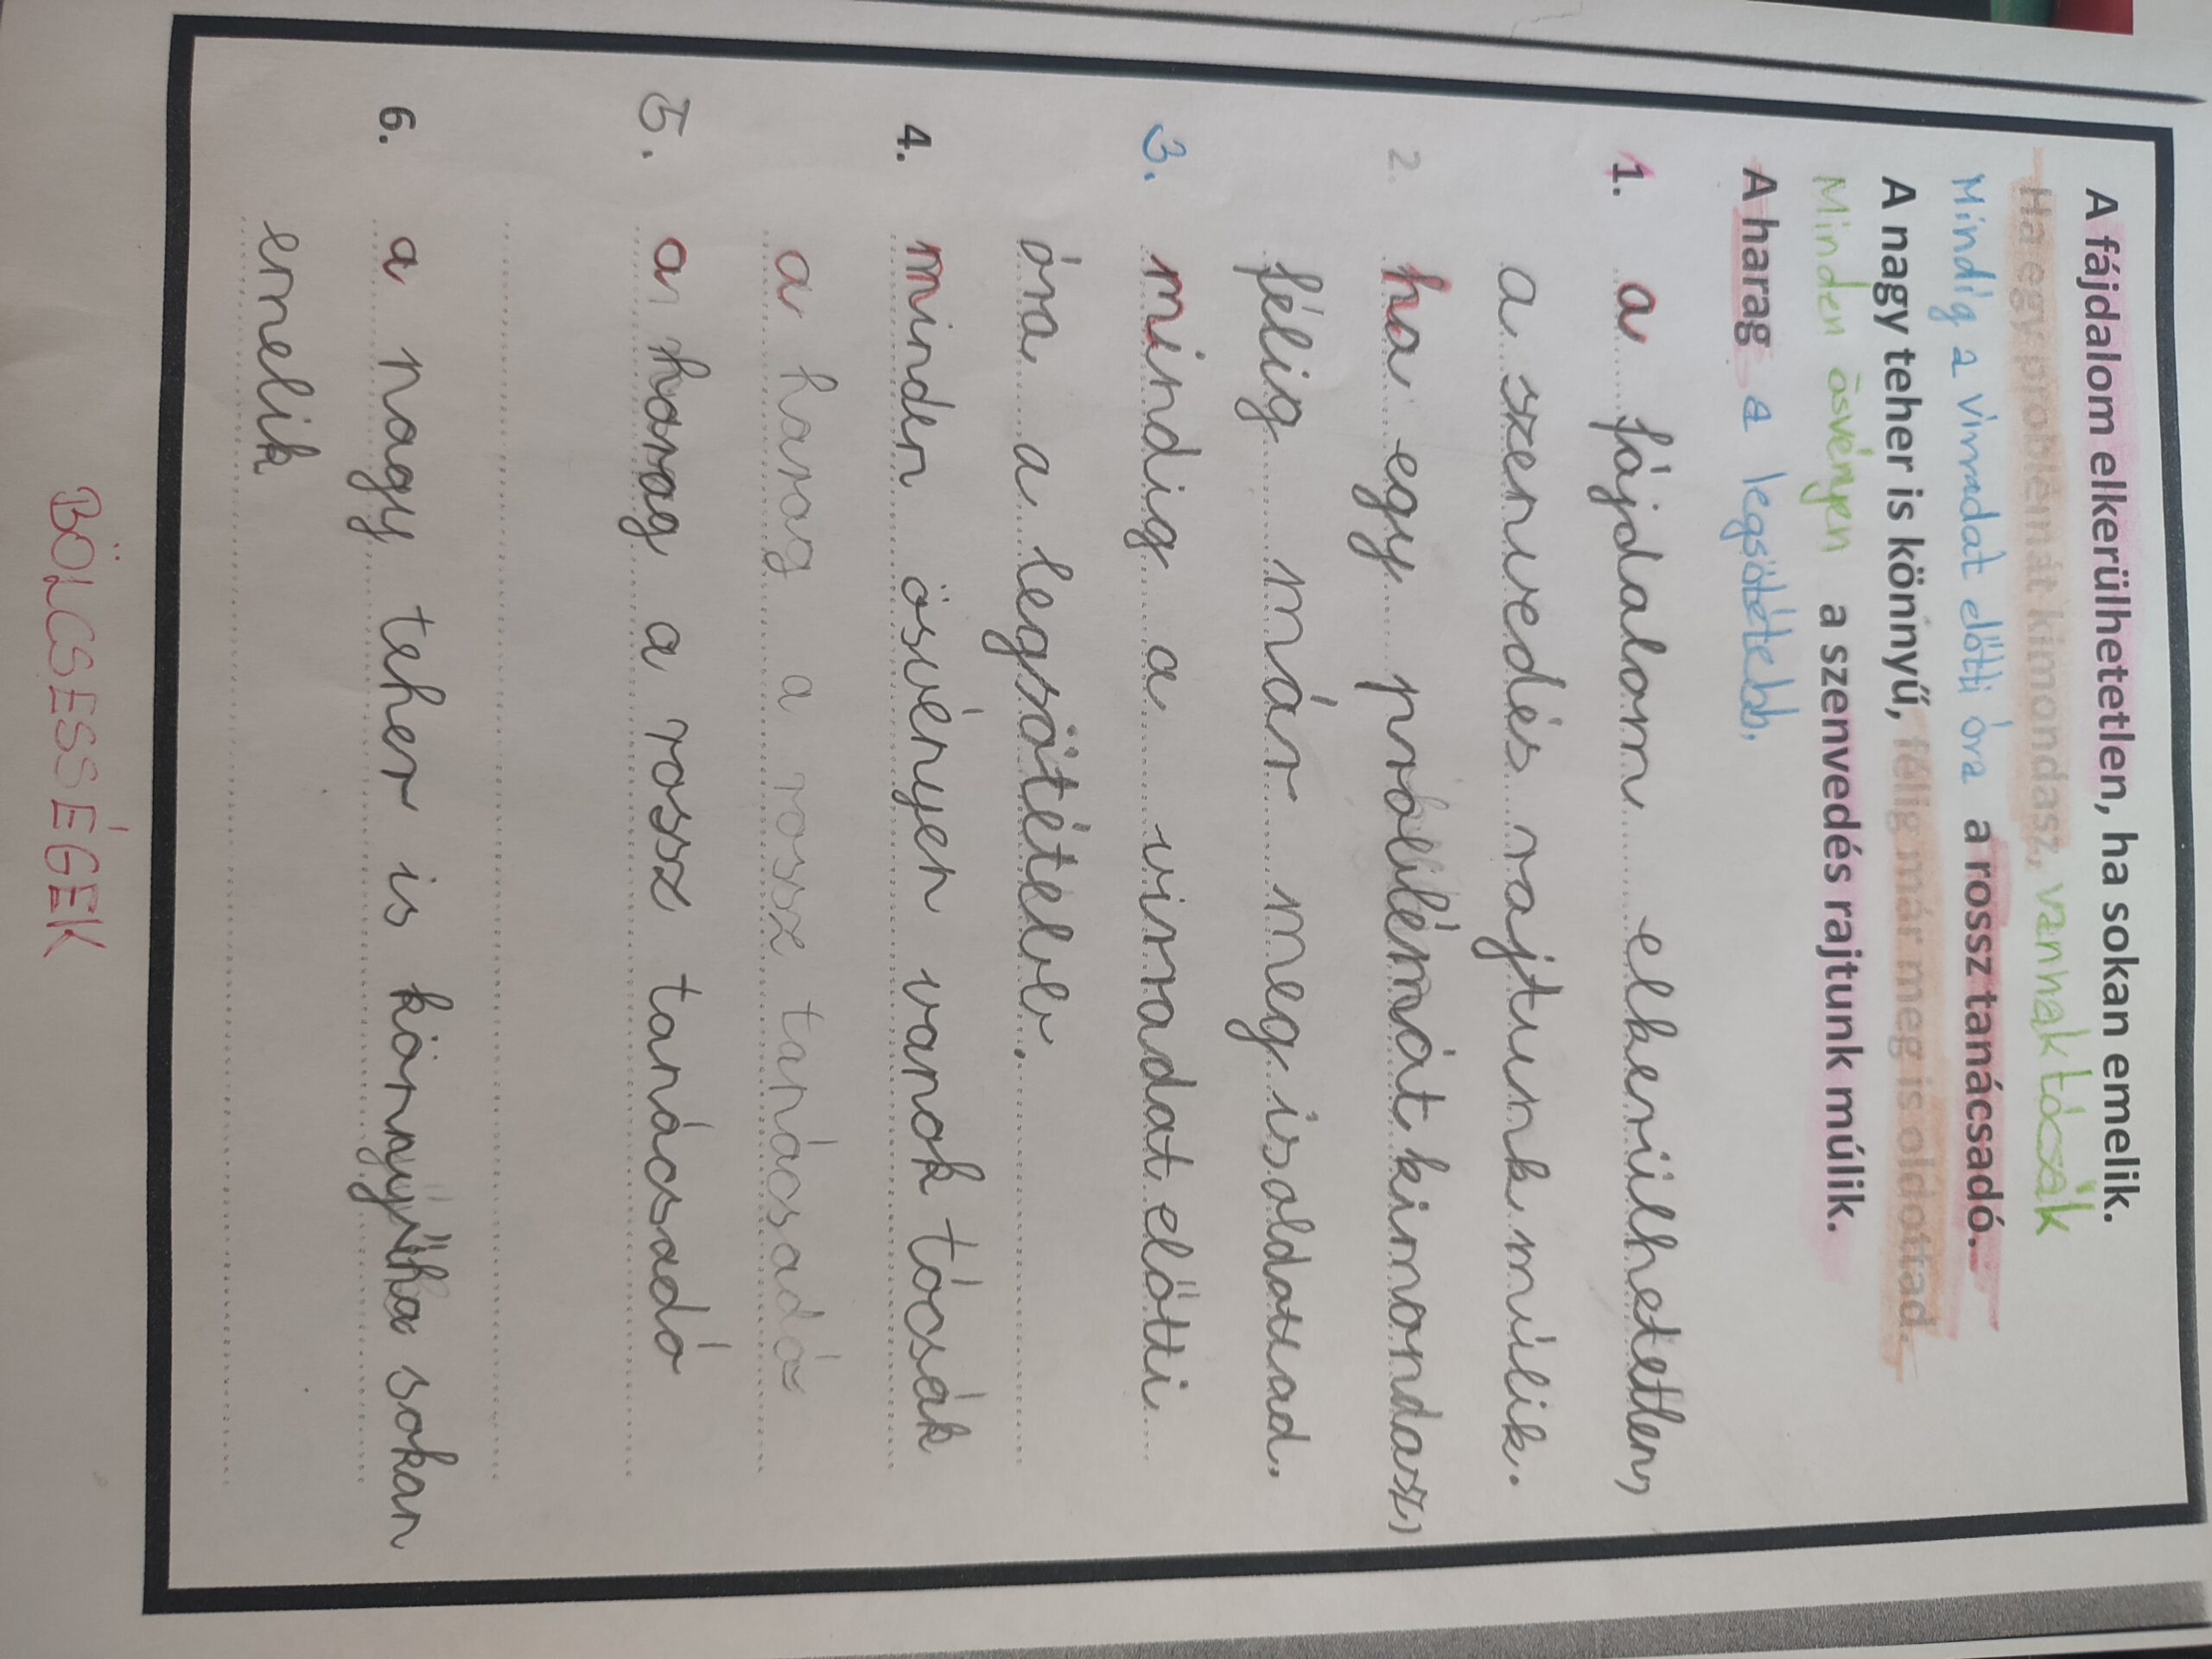 A fájdalom elkerülhetetlen, ha sokan emelik.
Ha egy problémát kimondasz, vannak tócsák
Mindig a virradat előtti óra a rossz tanácsadó.
A nagy teher is könnyű, félig már meg is oldottad.
Minden ösvényen a szenvedés rajtunk múlik.
A harag a legsötétebb.
1. a fájdalom elkerülhetetlen,
a szenvedés rajtunk múlik.
2. ha egy problémát kimondasz,
félig már meg is oldottad.
3. mindig a virradat előtti
óra a legsötétebb.
4. minden ösvényen vanak tócsák
a harag a rossz tanácsadó
5. a harag a rossz tanácsadó
6. a nagy teher is könnyű ha sokan
emelik
BÖLCSESSÉGEK